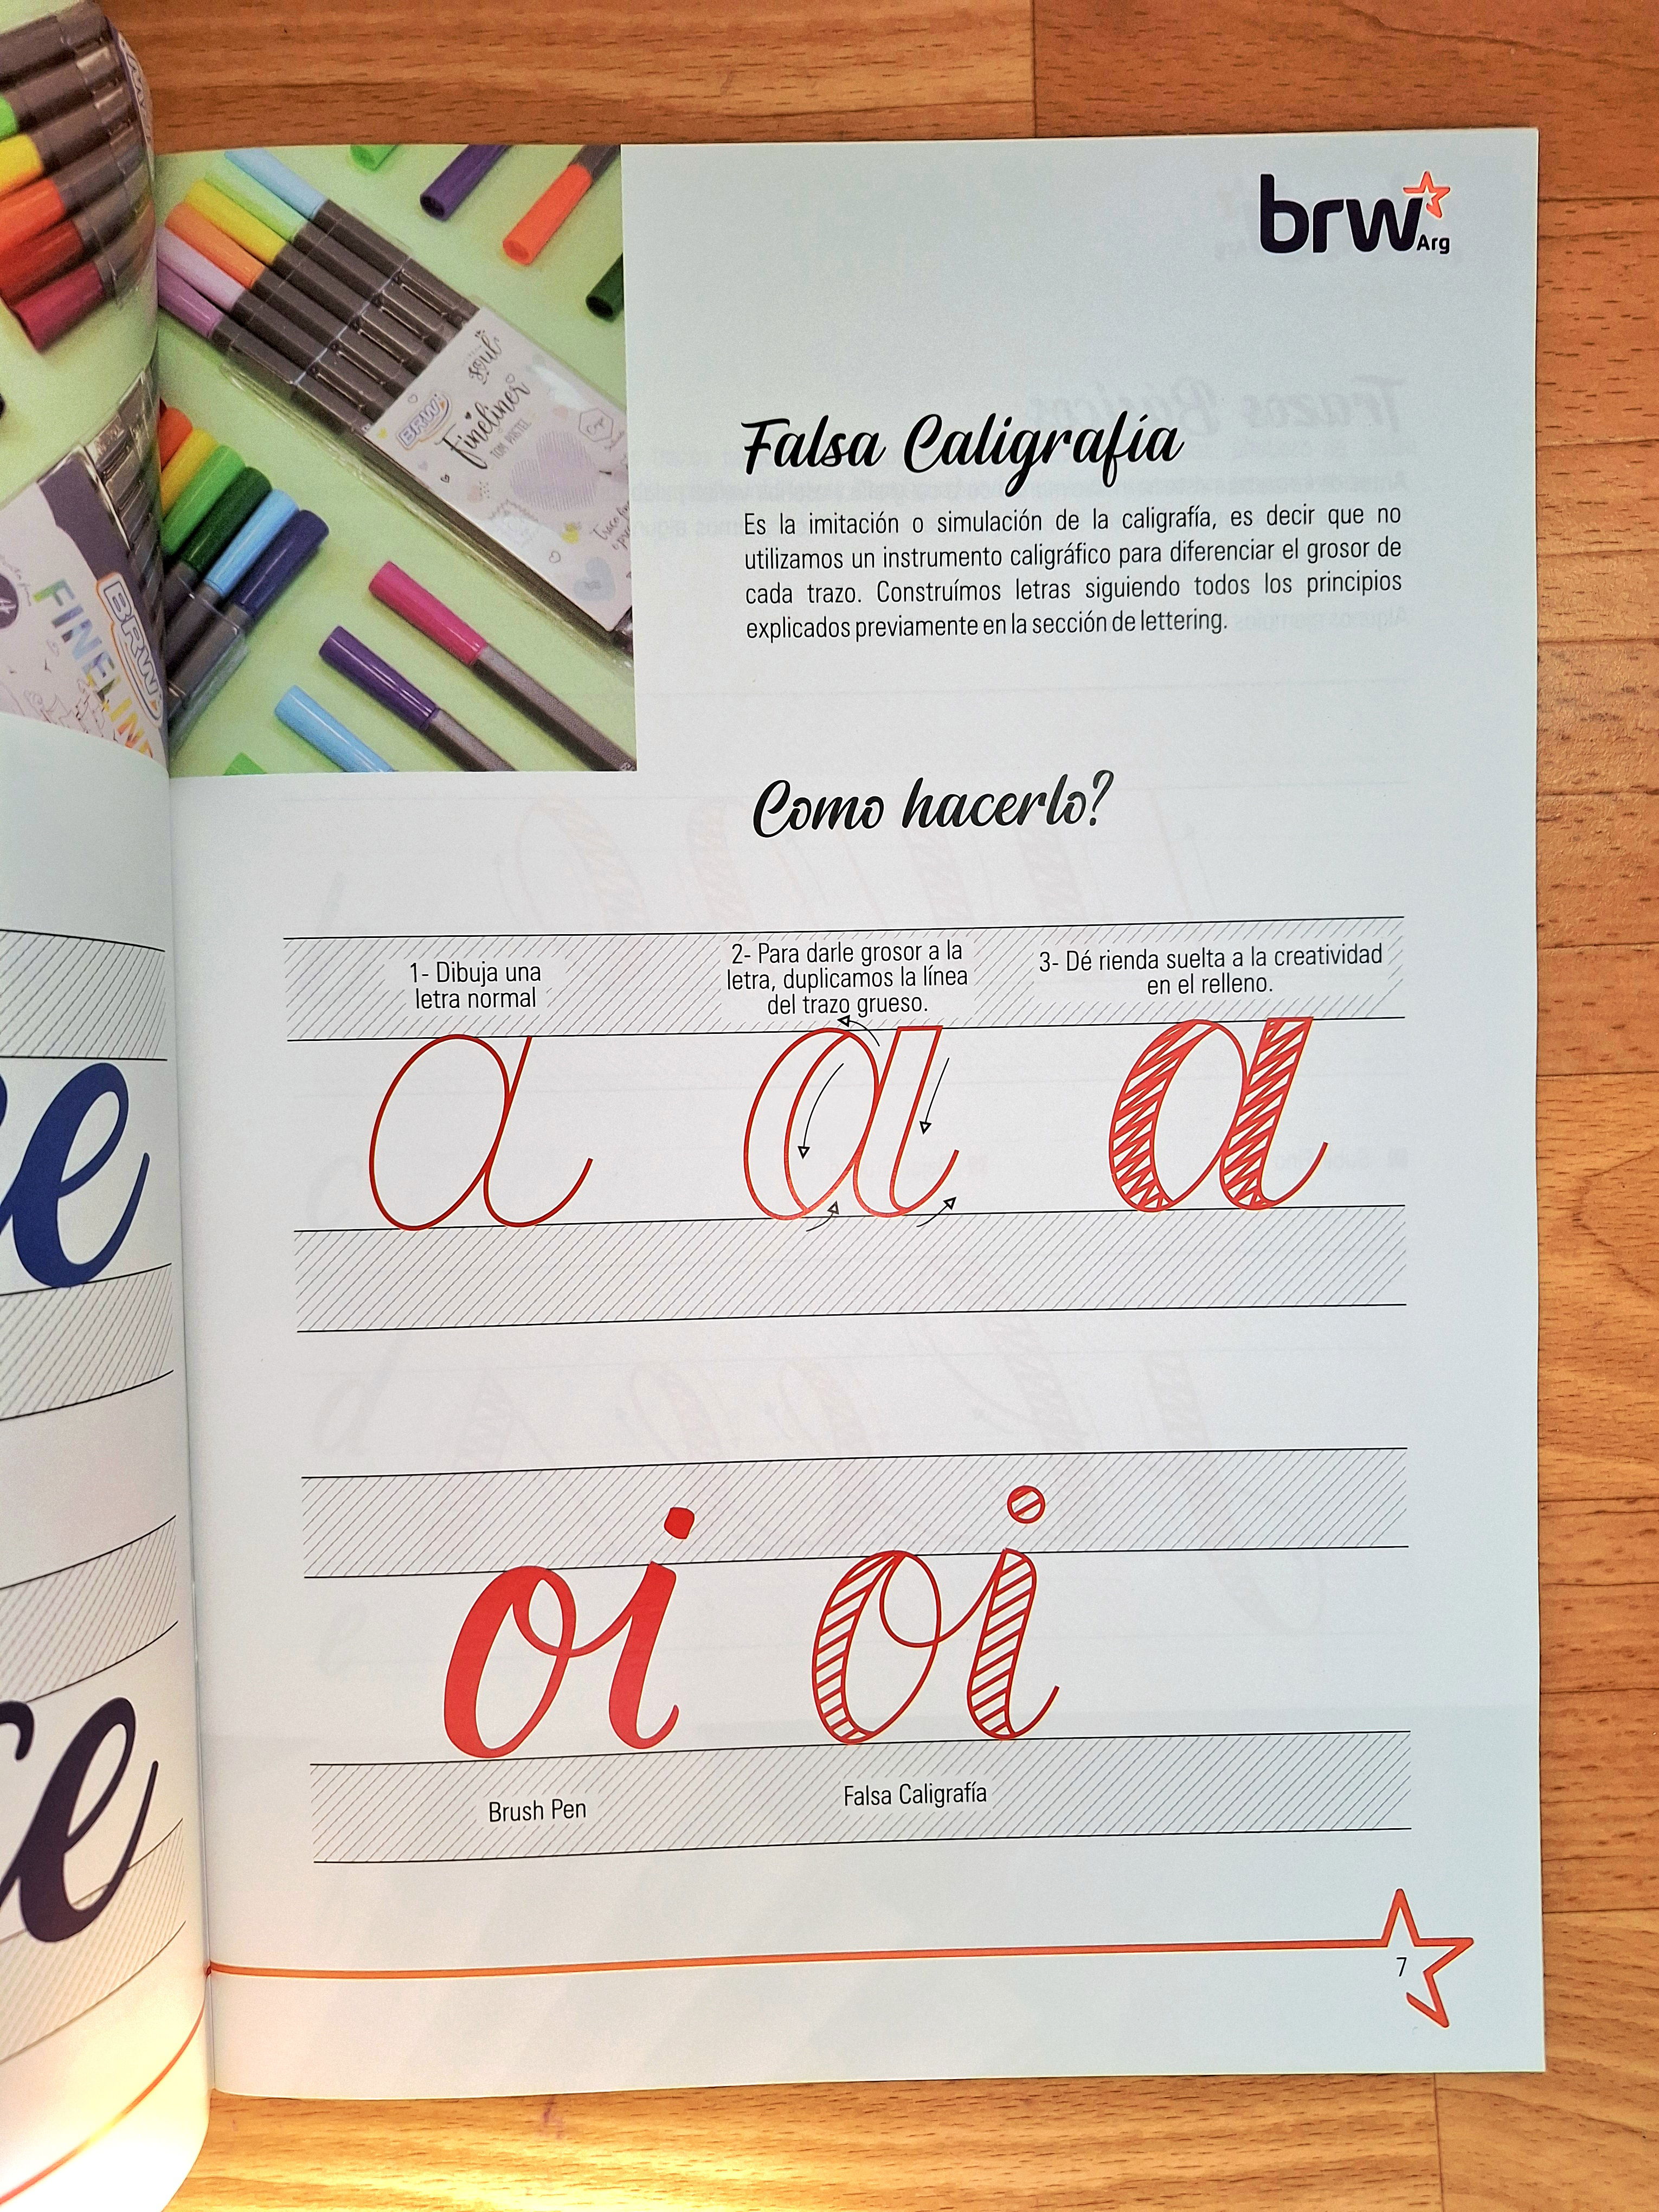 brw
Arg
BRW
Fineliner
TOM PASTEL
soul
BRW
FINELINE
Falsa Caligrafía
Es la imitación o simulación de la caligrafía, es decir que no
utilizamos un instrumento caligráfico para diferenciar el grosor de
cada trazo. Construímos letras siguiendo todos los principios
explicados previamente en la sección de lettering.
Como hacerlo?
1- Dibuja una
letra normal
2- Para darle grosor a la
letra, duplicamos la línea
del trazo grueso.
3- Dé rienda suelta a la creatividad
en el relleno.
a a a
e
oi oi
Brush Pen
Falsa Caligrafía
e
7